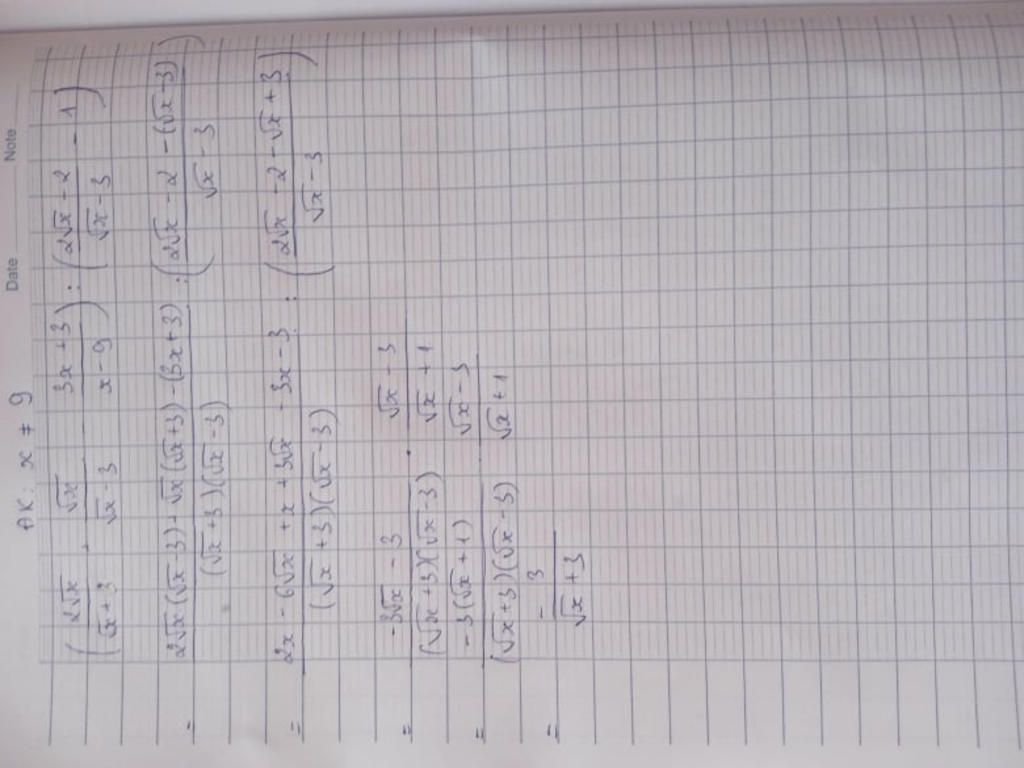 Date Note
ĐK: x ≠ 9
(2√x/(√x+3) + √x/(√x-3) - (3x+3)/(x-9)) : ((2√x-2)/(√x-3) - 1)
= (2√x(√x-3)+√x(√x+3)-(3x+3))/((√x+3)(√x-3)) : ((2√x-2-(√x-3))/(√x-3))
= (2x-6√x+x+3√x-3x-3)/((√x+3)(√x-3)) : ((2√x-2-√x+3)/(√x-3))
= (-3√x-3)/((√x+3)(√x-3)) . (√x-3)/(√x+1)
= (-3(√x+1))/((√x+3)(√x-3)) . (√x-3)/(√x+1)
= -3/(√x+3)